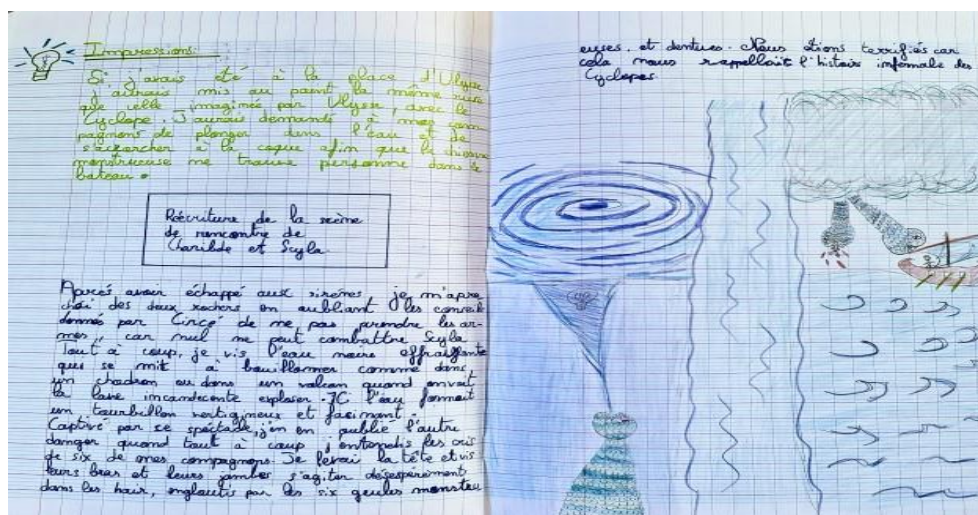 Impressions:
Si j'avais été à la place d'Ulysse
j'aurais mis au point la même ruse
que celle imaginée par Ulysse, avec le
Cyclope. J'aurais demandé à mes com
pagnons de plonger dans l'eau et de
s'acrocher à la coque afin que la
monstrueuse ne trouve personne dans le
bateau.
Réécriture de la scène
de rencontre de
Charibde et Scyla
Aprés avoir échappé aux sirènes je m'apro
chai des deux rochers en oubliant les conseils
donnés par Circé de ne pas prendre les ar-
mes, car nul ne peut combattre Scyla
Tout à coup, je vis l'eau noire effrayante
qui se mit à bouillonner comme dans
un chadron ou dans un volcan quand on voit
la lave incandecente exploser. IC l'eau formait
un tourbillon vertigineux et fasinant.
Captivé par ce spectacle, j'en en oublié l'autre
danger quand tout à coup j'entendis les cris
de six de mes compagnons. Je levai la tête et vis
leurs bras et leurs jambes s'agiter désespérément
dans les hair, engloutis par les six geules monstru
euses. et dentues. Nous étions terrifiés car
cela nous rappellait l'histoir infernale des
Cyclopes.